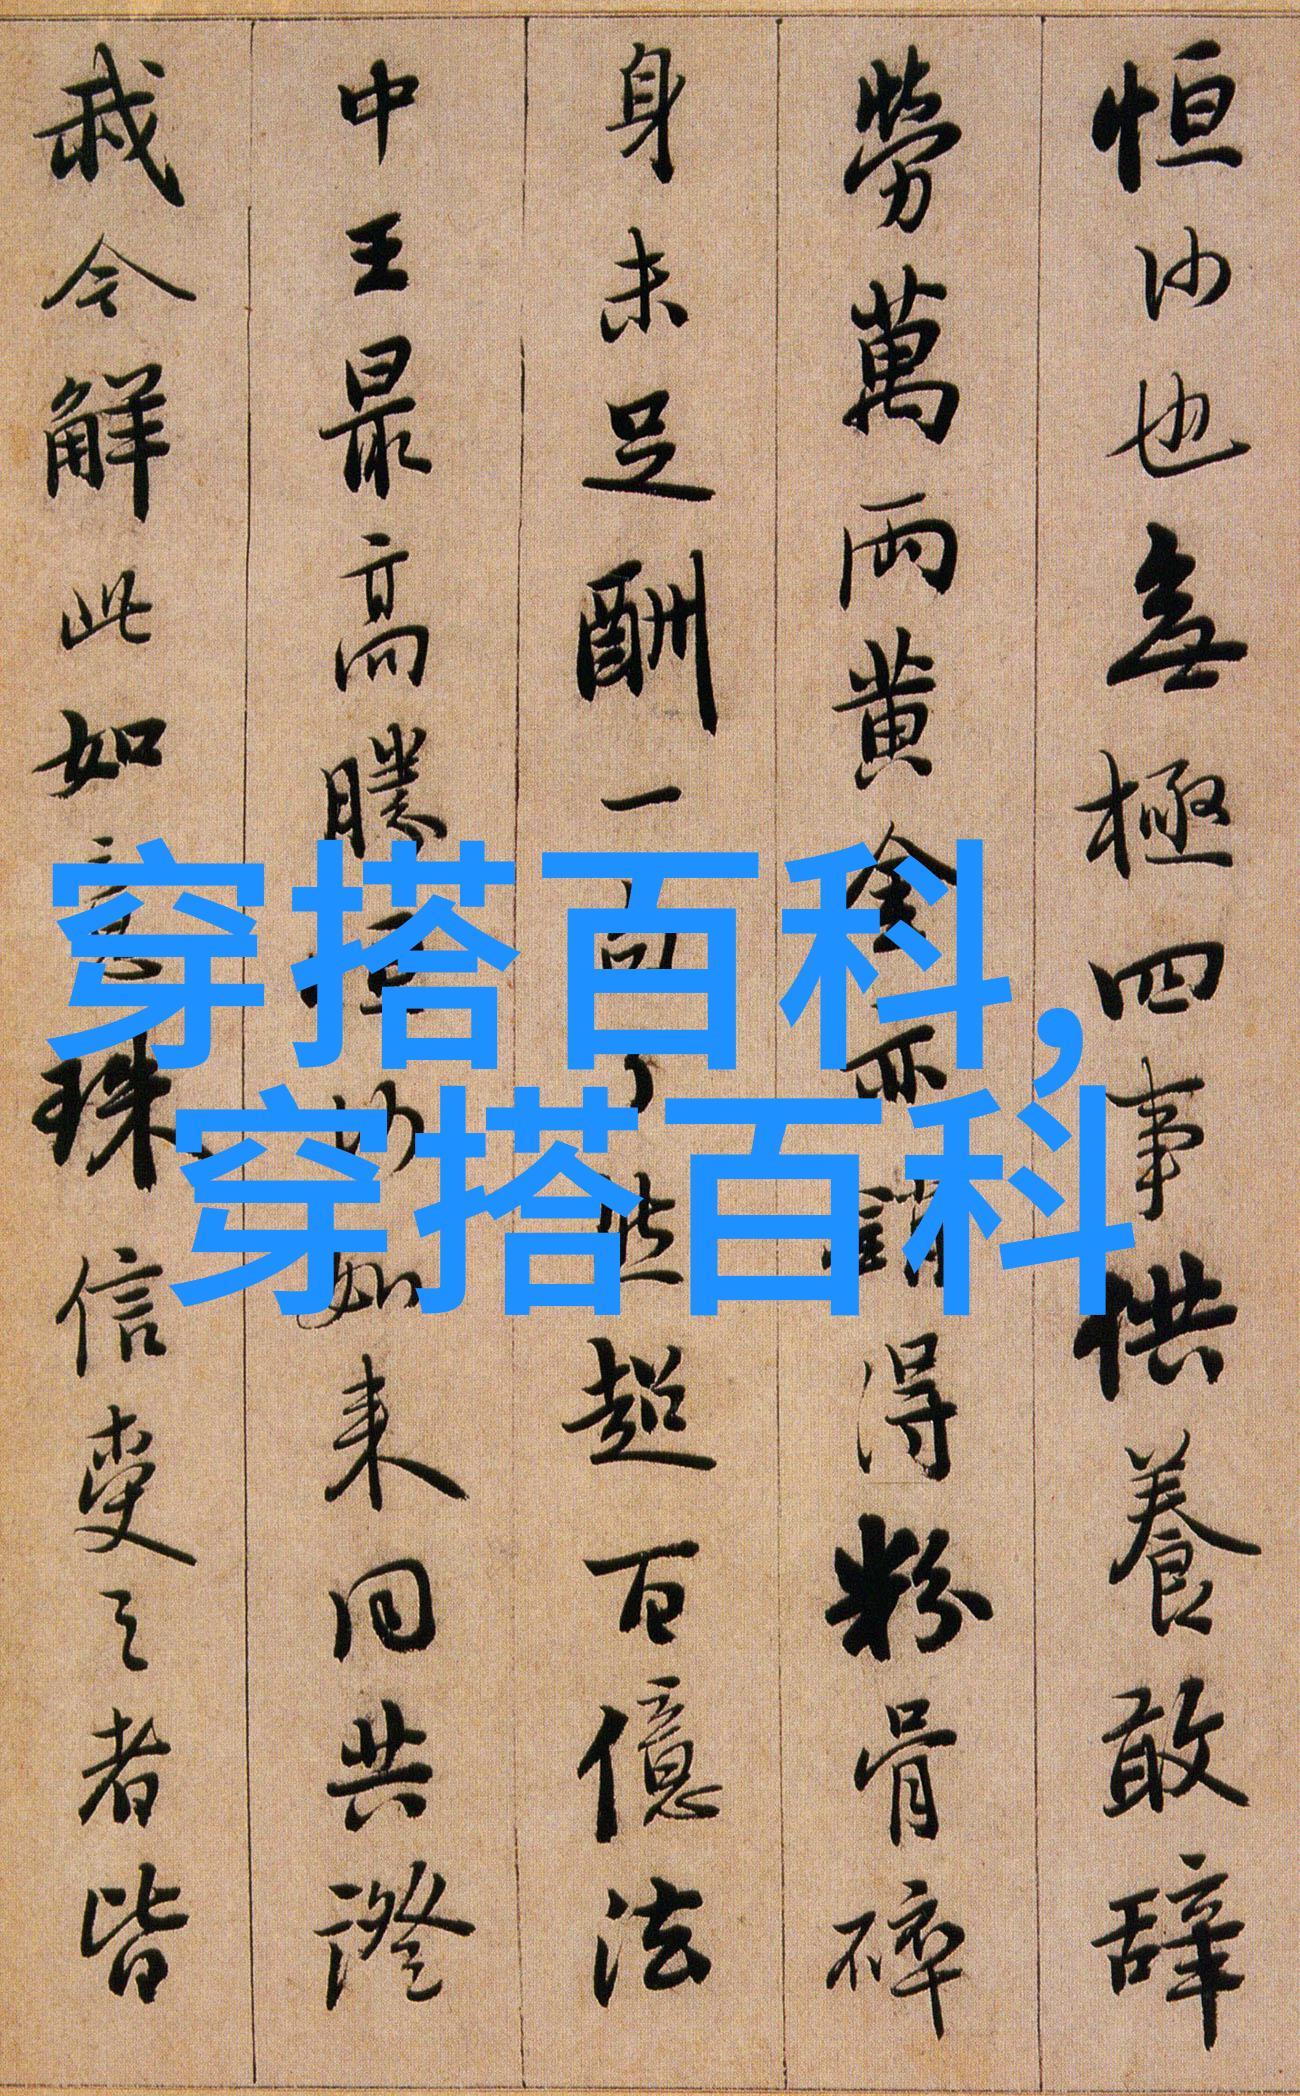 恒沙也無極四事供養敢辭
勞萬兩黄金亦銷得粉骨碎
身未足酬一句了然超百億法
中王最高勝恒沙如来同共證
我今解此如意珠信受之者皆
穿搭百科,
穿搭百科